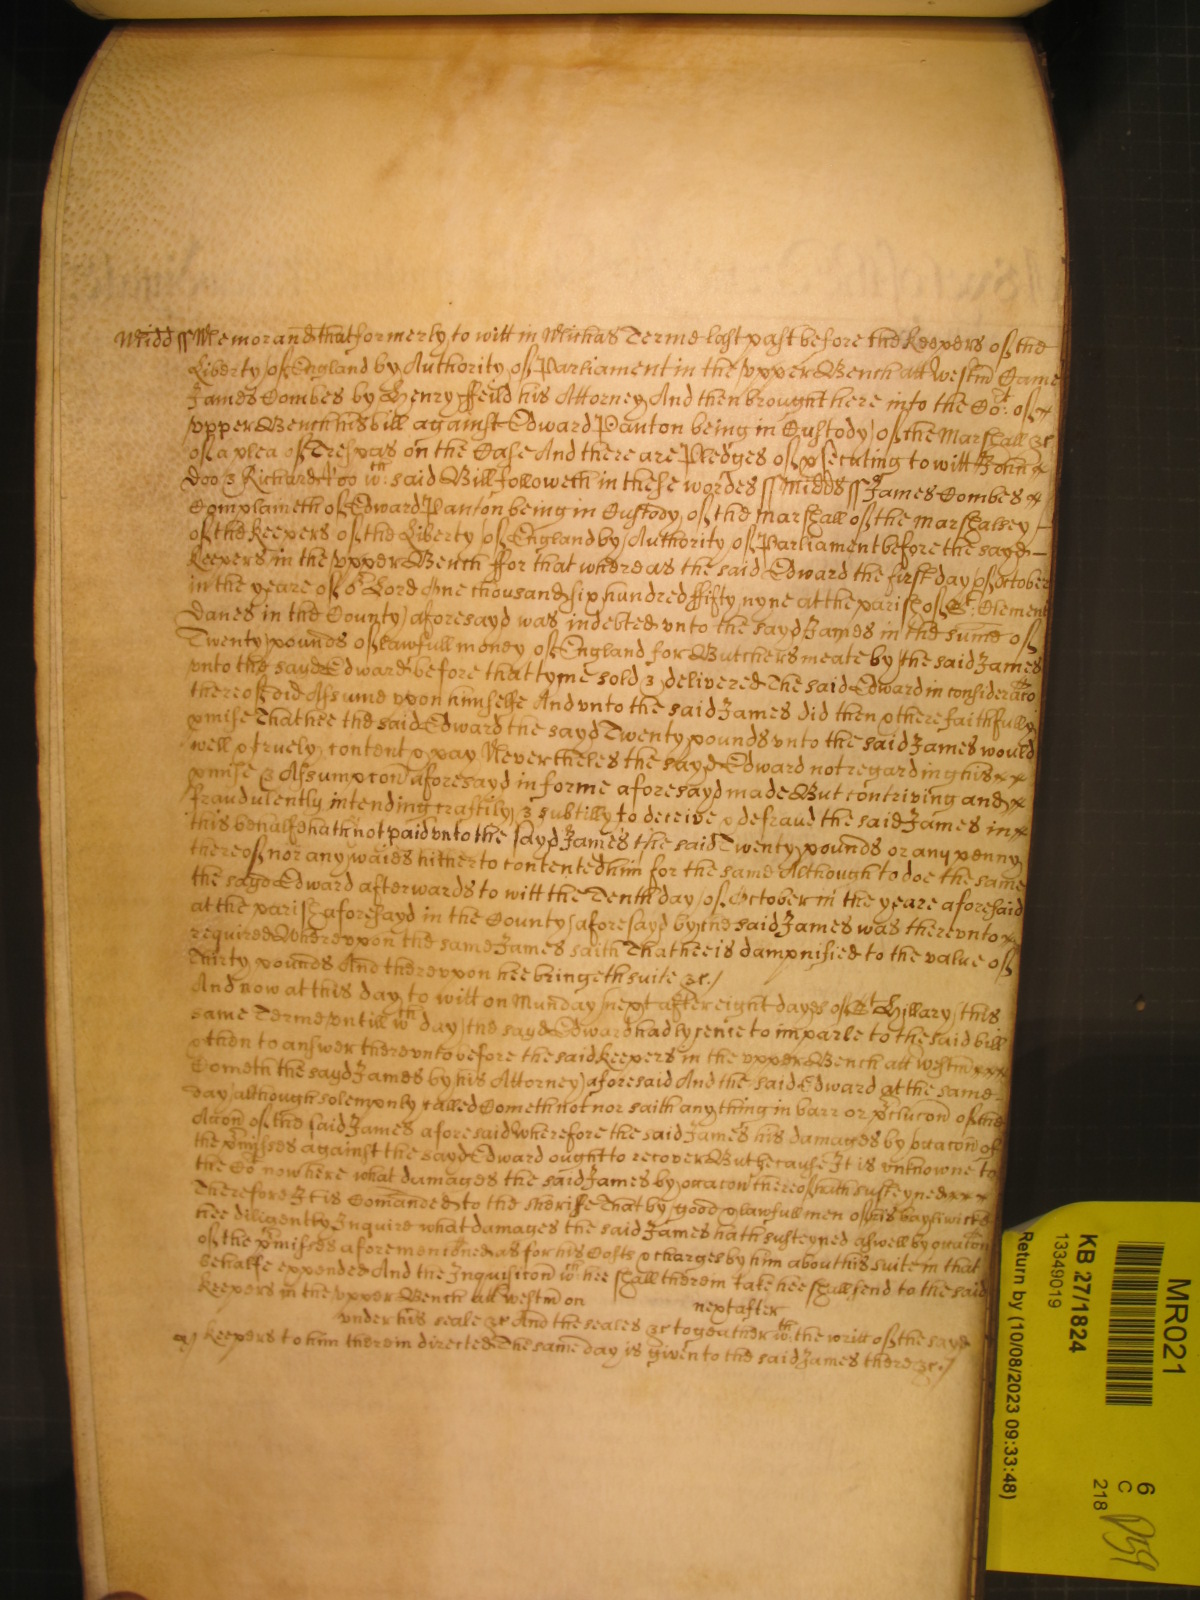 Midd ss Memorand that formerly to witt in Michas Terme last past before the Keepers of the
Liberty of England by Authority of Parliament in the upper Bench att Westm Came
James Combes by Henry ffeild his Attorney And then brought here into the Cot: of
upper Bench his bill against Edward Panton being in Custody of the Marshall &c
of a plea of Trespas on the Case And there are Pledges of psecuting to witt John
Doo & Richard Roo wth said Bill followeth in these wordes ss Midds ss James Combes
Complaineth of Edward Panton being in Custody of the Marshall of the Marshalsey
of the Keepers of the Liberty of England by Authority of Parliament before the sayd
Keepers in the upper Bench ffor that whereas the said Edward the first day of October
in the yeare of or Lord One thousand six hundred ffifty nyne at the parish of St: Clement
Danes in the County aforesayd was indebted unto the sayd James in the sume of
Twenty pounds of lawfull money of England for Butchers meate by the said James
unto the sayd Edward before that tyme sold & delivered The said Edward in consideracõ
thereof did Assume upon himselfe And unto the said James did then & there faithfully
pmise That hee the said Edward the sayd Twenty pounds unto the said James would
well & truely content & pay Nevertheles the sayd Edward not regarding his
pmise & Assumpcon aforesayd in forme aforesayd made But contriving and
fraudulently intending craftily & subtilly to deceive & defraud the said James in
this behalfe hath not paid unto the sayd James the said Twenty pounds or any penny
thereof nor any waies hitherto contented him for the same Although to doe the same
the sayd Edward afterwards to witt the Tenth day of October in the yeare aforesaid
at the parish aforesayd in the County aforesayd by the said James was thereunto
required Whereupon the same James saith That hee is dampnified to the value of
Thirty pounds And thereupon hee bringeth suite &c./
And now at this day to witt on Munday next after eight dayes of St Hillary this
same Terme untill wth day the sayd Edward had lycence to imparle to the said bill
& then to answer thereunto before the said Keepers in the upper Bench att Westm
Cometh the sayd James by his Attorney aforesaid And the said Edward at the same
day although solempnly called Cometh not nor saith any thing in barr or pclucon of the
Accon of the said James aforesaid Wherefore the said James his damages by occacon of
the pmisses against the sayd Edward ought to recover But because It is unknowne to
the Cot now here what damages the said James by occacon thereof hath susteyned
Therefore It is Comanded to the Sheriffe That by good & lawfull men of his bayliwicke
hee diligently Inquire what damages the said James hath susteyned aswell by occacon
of the pmisses aforementioned as for his Costs & charges by him about his suite in that
behalfe expended And the Inquisicon wch hee shall therein take hee shall send to the said
Keepers in the upper Bench att Westm on next after
under his seale &c And the seales &c togeather wth the writt of the sayd
Keepers to him therein directed The same day is given to the said James there &c./
MR021
KB 27/1824
13349019
Return by (10/08/2023 09:33:48)
6
C
218